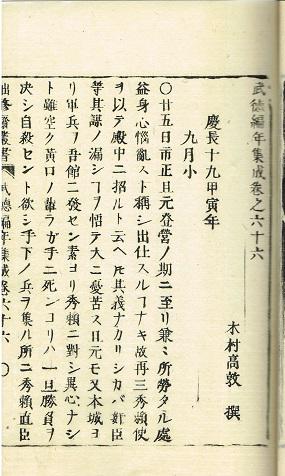 武德編年集成卷之六十六
木村高敦 撰
慶長十九甲寅年
九月小
〇廿五日市正且元登營ノ期ニ至リ兼ミ所勞タル處
益身心惱亂スト稱シ出仕スルヿナキ故再三秀賴使
ヲ以テ殿中ニ招ルト云ヘ𪜈其義ナカリシカバ奸臣
等其謀ノ漏シヿヲ悟テ大ニ憂苦ス且元モ又本城ヨ
リ軍兵ヲ吾館ニ發セン素ヨリ秀賴ニ對シ異心ナシ
ト雖空ク黄口ノ輩ラガ手ニ死ンコリハ一旦勝負ヲ
决シ自殺セント欲シ手下ノ兵ヲ集ル所ニ秀賴直臣
武德編年集成卷六十六 〇